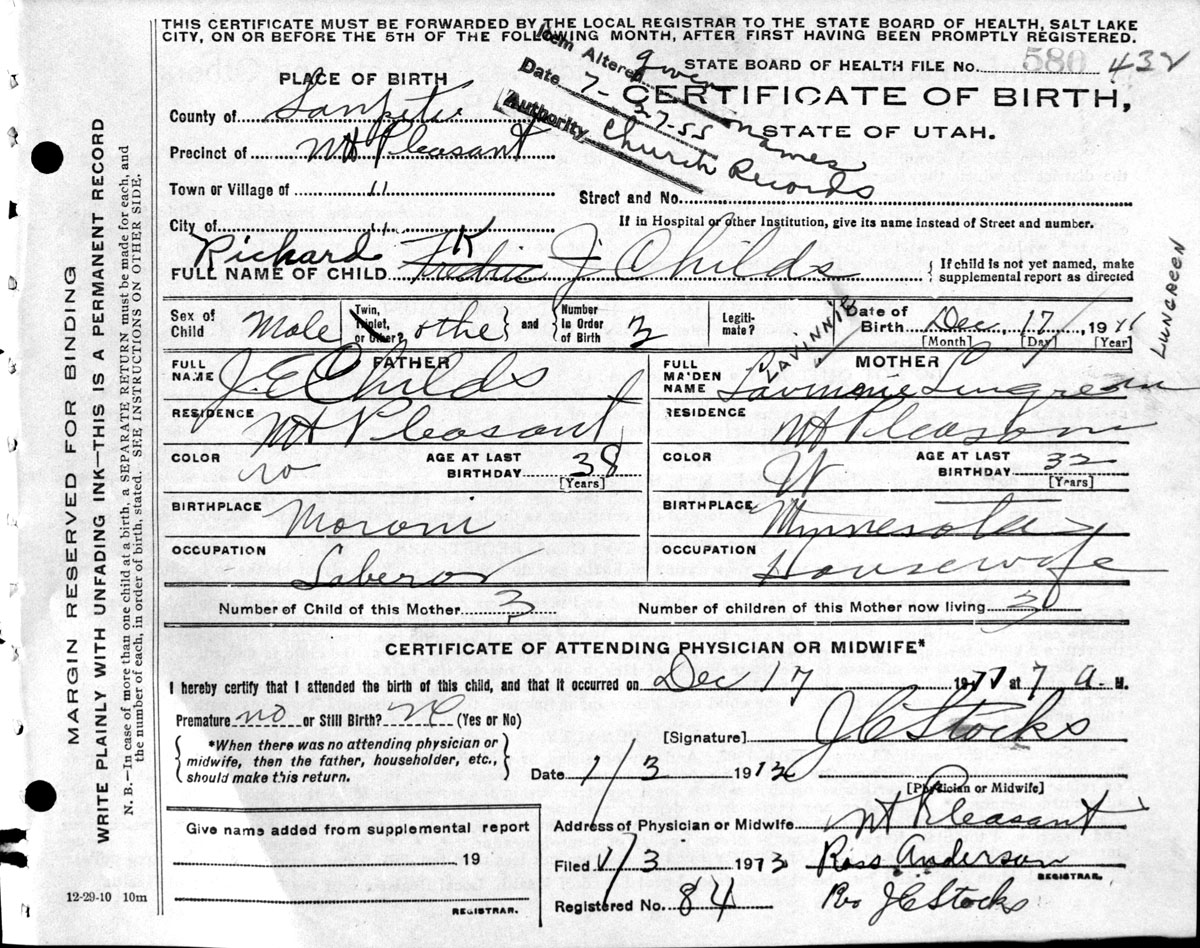 THIS CERTIFICATE MUST BE FORWARDED BY THE LOCAL REGISTRAR TO THE STATE BOARD OF HEALTH, SALT LAKE
CITY, ON OR BEFORE THE 5TH OF THE FOLLOWING MONTH, AFTER FIRST HAVING BEEN PROMPTLY REGISTERED.
Item Altered given names
Date 7-27-55
Authority Church Records
STATE BOARD OF HEALTH FILE NO. 580 432
PLACE OF BIRTH
CERTIFICATE OF BIRTH,
STATE OF UTAH.
County of Sanpete
Precinct of Mt Pleasant
Town or Village of "
Street and No.
City of "
If in Hospital or other Institution, give its name instead of Street and number.
Richard K
FULL NAME OF CHILD J Childs
{ If child is not yet named, make
supplemental report as directed
Sex of Child Male
Twin, Triplet, or Other? othe } and { Number In Order of Birth 3
Legitimate?
Date of Birth Dec, 17, 1911
[Month] [Day] [Year]
FATHER
FULL NAME J. E Childs
RESIDENCE Mt Pleasant
COLOR
AGE AT LAST BIRTHDAY 38
[Years]
BIRTHPLACE Moroni
OCCUPATION Laberor
MOTHER
LAVINNIE
LUNGREEN
FULL MAIDEN NAME
RESIDENCE Mt Pleasant
COLOR W
AGE AT LAST BIRTHDAY 32
[Years]
BIRTHPLACE Minnesota
OCCUPATION Housewife
Number of Child of this Mother 3
Number of children of this Mother now living 3
CERTIFICATE OF ATTENDING PHYSICIAN OR MIDWIFE*
I hereby certify that I attended the birth of this child, and that it occurred on Dec 17 1911 at 7 a. M.
Premature no or Still Birth? no (Yes or No)
{ *When there was no attending physician or
midwife, then the father, householder, etc.,
should make this return. }
[Signature] J C Stocks
Date 1/3 1912
[Physician or Midwife]
Give name added from supplemental report
19
REGISTRAR.
Address of Physician or Midwife Mt Pleasant
Filed 1/3 1912 Ross Anderson
REGISTRAR.
Registered No. 84 J C Stocks
12-29-10 10m
MARGIN RESERVED FOR BINDING
WRITE PLAINLY WITH UNFADING INK—THIS IS A PERMANENT RECORD
N. B.—In case of more than one child at a birth, a SEPARATE RETURN must be made for each, and
the number of each, in order of birth, stated. SEE INSTRUCTIONS ON OTHER SIDE.